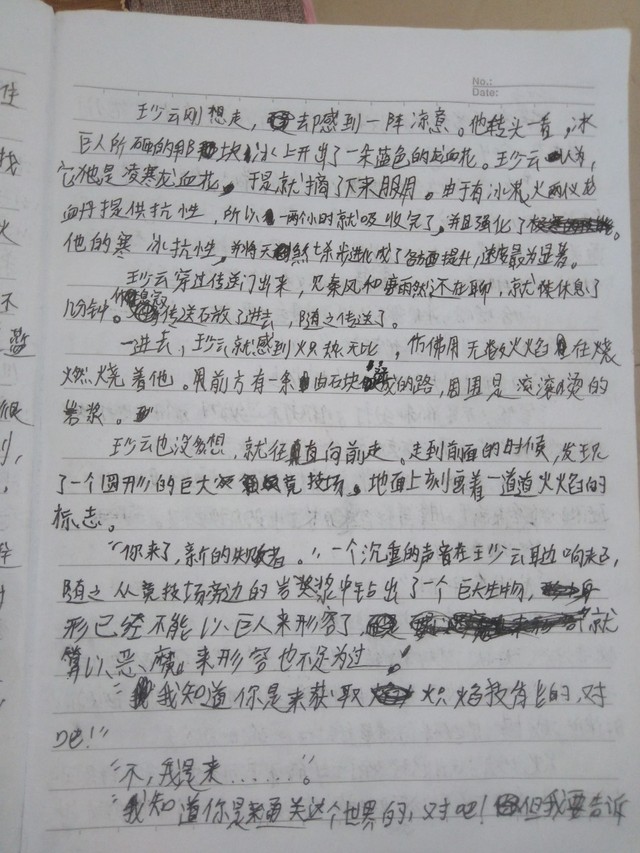 No.:
Date:
王少云刚想走，却感到一阵凉意。他转头一看，冰
巨人所砸的那块冰上开出了一朵蓝色的龙血花。王少云认为，
它他是凌寒龙血花，于是就摘了下来服用。由于有冰火两仪
血丹提供抗性，所以一两个小时就吸收完了，并且强化了
他的寒冰抗性，并将天杀步进化成了各方面提升，速度最为显著。
王少云穿过传送门出来，见秦风和雨然还在聊，就休息了
几分钟。传送石放了进去，随之传送了。
一进去，王少云就感到炽热无比，仿佛用无数火焰在烧
燃烧着他。前方有一条由石块成的路，周围是滚滚烫的
岩浆。
王少云也没多想，就径直向前走。走到前面的时候，发现
了一个圆形的巨大竞技场。地面上刻画着一道道火焰的
标志。
“你来了，新的失败者。”一个沉重的声音在王少云耳边响起，
随之从竞技场旁边的岩浆中钻出了一个巨大生物，身
形已经不能以巨人来形容了，就
算以恶魔来形容也不足为过！
“我知道你是来获取炽焰的，对
吧！”
“不，我是来......”。
“我知道你是来通关这个世界的，对吧！但我要告诉